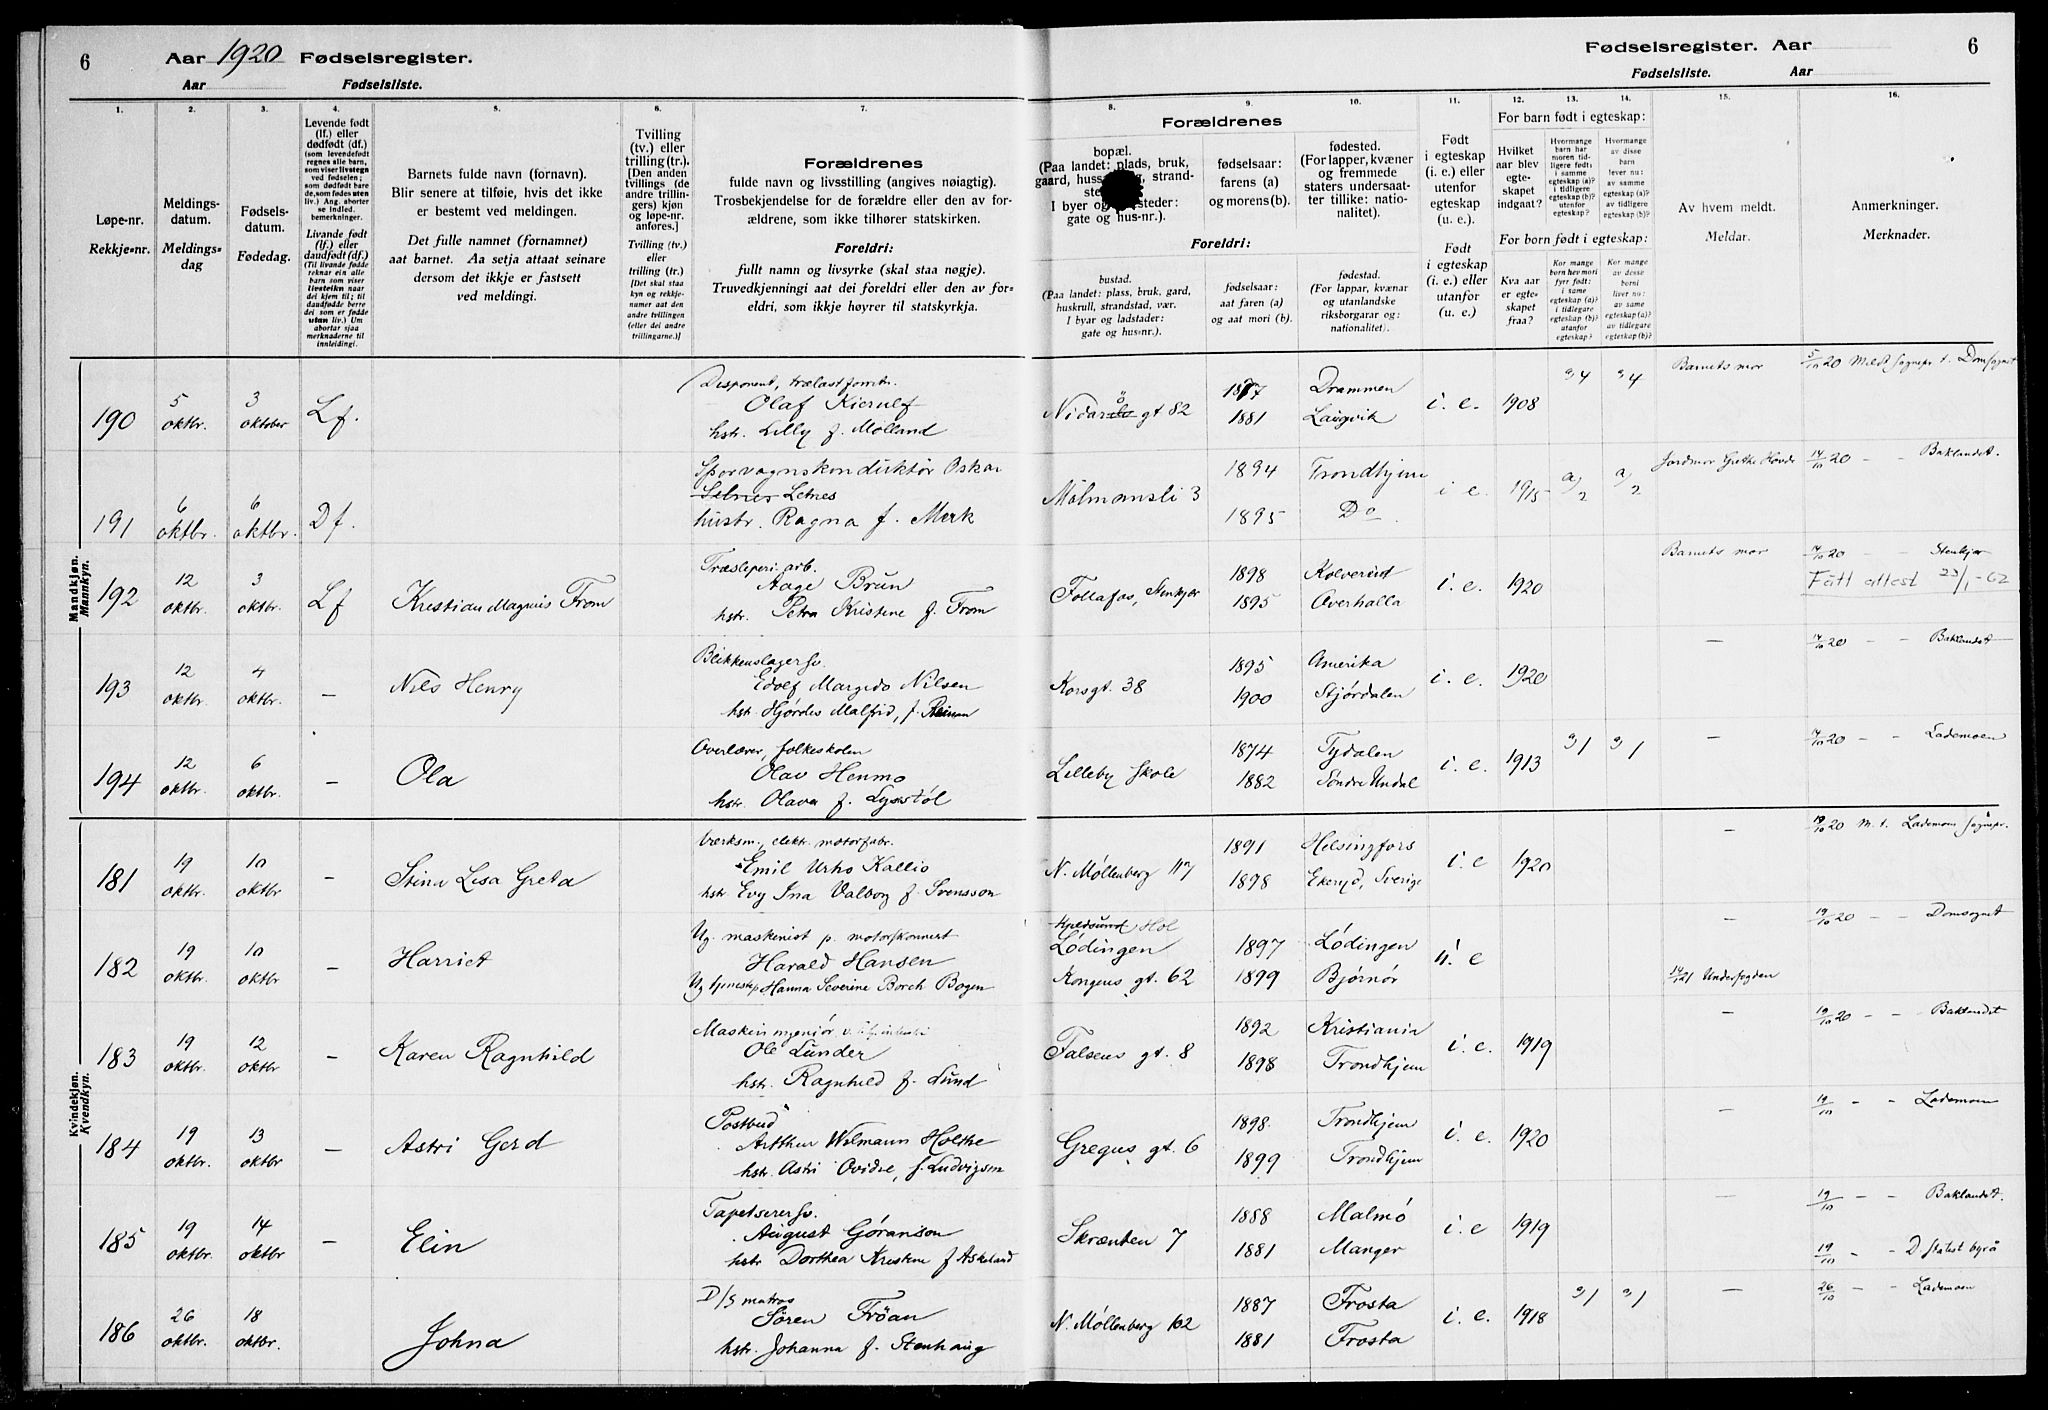 6
Aar 1920 Fødselsregister.
Aar Fødselsliste.
Fødselsregister. Aar
6
Fødselsliste. Aar
1.
2.
3.
4.
5.
6.
7.
8.
9.
10.
11.
12.
13.
14.
15.
16.
Løpe-nr.
Rekkje-nr.
Meldings-
datum.
Meldings-
dag
Fødsels-
datum.
Fødedag.
Levende født
(lf.) eller
dødfødt (df.)
(som levendefødt
regnes alle barn,
som viser livstegn
ved fødselen;
som dødfødt bare
de, som fødes uten
liv.) Ang. aborter
se indled.
bemerkninger.
Livande født
(lf.) eller
daudfødt (df.)
(Til livande fødde
reknar ein alle
born som viser
livsteikn naar
dei kjem til; til
daudfødde berre
dei som er fødde
utan liv.) Um
abortar sjaa
merknaderne til
innleidingi.
Barnets fulde navn (fornavn).
Blir senere at tilføie, hvis det ikke
er bestemt ved meldingen.
Det fulle namnet (fornamnet)
aat barnet. Aa setja attaat seinare
dersom det ikkje er fastsett
ved meldingi.
Tvilling
(tv.) eller
trilling (tr.).
[Den anden
tvillings (de
andre trillin-
gers) kjøn
og løpe-nr.
anføres.]
Tvilling (tv.)
eller
trilling (tr.)
[Det skal staa
kyn og rekkje-
numer aat den
andre tvillingen
(eller dei andre
trillingarne.)]
Forældrenes
fulde navn og livsstilling (angives nøiagtig).
Trosbekjendelse for de forældre eller den av for-
ældrene, som ikke tilhører statskirken.
Foreldri:
fullt namn og livsyrke (skal staa nøgje).
Truvedkjenningi aat dei foreldri eller den av for-
eldri, som ikkje høyrer til statskyrkja.
Forældrenes
bopæl.
(Paa landet: plads, bruk,
I byer
gate og hus-nr.).
fødselsaar:
farens (a)
og morens (b).
fødested.
(For lapper, kvæner
og fremmede
staters undersaat-
ter tillike: natio-
nalitet).
Foreldri:
bustad.
(Paa landet: plass, bruk, gard,
huskrull, strandstad, vær.
I byar og ladstader:
gate og hus-nr.).
fødselsaar:
aat faren (a)
og aat mori (b).
fødestad.
(For lappar, kvænar
og utanlandske
riksborgarar og:
nationalitet).
Født
i egteskap
(i. e.) eller
utenfor
egteskap
(u. e.).
Født
i egteskap
(i. e.) eller
utanfor
egteskap
(u. e.)
For barn født i egteskap:
Hvilket
aar blev
egte-
skapet
indgaat?
Hvormange
barn har
moren tid-
ligere født:
i samme
egteskap (a)?
i tidligere
egteskap (b)?
utenfor
egteskap?
Hvormange
av disse
barn
lever nu:
av samme
egteskap (a)?
av tidligere
egteskap (b)?
For born født i egteskap:
Kva aar
er egte-
skapet
fraa?
Kor mange
born hev mori
fyrr født:
i same
egteskap (a)?
i tidlegare
egteskap (b)?
utanfor
egteskap?
Kor mange
av desse
borni
liver nu:
av same
egteskap (a)?
av tidlegare
egteskap (b)?
Av hvem meldt.
Meldar.
Anmerkninger.
Merknader.
Mandkjøn.
Mannkyn.
190 5 oktbr. 3 oktober Lf.
Disponent, trælastforretn.
Olaf Kierulf
hstr. Lilly f. Mølland
Nidarö gt 82 1877 1881 Drammen Laugvik i. e. 1908 a/4 a/4 Barnets mor
5/10 20 Meldt sognepr. t. Domsognet
191 6 oktbr. 6 oktbr. Df.
Sporvognskonduktør Oskar
Letnes
hustr. Ragna f. Merk
Målmansli 3 1894 1895 Trondhjem Do i e. 1915 a/2 a/2 Jordmor Grethe Hovde
14/10 20 - - Baklandet.
192 12 oktbr. 3 oktbr. Lf Kristian Magnus From
Træsliperi arb.
Aage Brun
hstr. Petra Kristine f. From
Follafos, Stenkjær 1898 1895 Kolvereid Overhalla i. e. 1920 Barnets mor
14/10 20 - - Stenkjær
Fått attest 23/1-62
193 12 oktbr. 4 oktbr. - Nils Henry
Blikkenslagersv.
Edolf Margido Nilsen
hst. Hjørdis Malfrid, f. Reinan
Korsgt. 38 1895 1900 Amerika Stjørdalen i. e. 1920 -
14/10 20 - - Baklandet
194 12 oktbr. 6 oktbr. - Ola
Overlærer, folkeskolen
Olav Henmo
hstr. Olava f. Lystøl
Lilleby Skole 1874 1882 Tydalen Søndre Undal i. e. 1913 a/1 a/1 -
14/10 20 - - Lademoen
Kvindekjøn.
Kvendkyn.
181 19 oktbr. 10 oktbr - Stina Lisa Greta
Værksm., elektr. motorfabr.
Emil Urho Kallio
hstr Evy Ina Valborg f. Svensson
N. Møllenberg 117 1891 1898 Helsingfors Ekeryd, Sverige i. e 1920 -
19/10 20 M. t. Lademoen sognepr.
182 19 oktbr. 10 oktbr. - Harriet
Ug. maskinist p. motorskonnert
Harald Hansen
Ug tjenestep. Hanna Severine Borch Bogen
Kjeldsund Hol
Lødingen
Kongens gt. 62 1897 1899 Lødingen Bjørnør u. e -
Undersøgden
19/10 20 - - Domsognet
183 19 oktbr. 12 oktbr - Karen Ragnhild
Maskiningeniør
Ole Lunder
hstr. Ragnhild f. Lund
Falsens gt. 8 1892 1898 Kristiania Trondhjem i. e. 1919 -
19/10 20 - - Baklandet
184 19 oktbr. 13 oktbr - Astri Gerd
Postbud
Arthur Wilmann Holthe
hstr. Astri Ovidie, f. Ludvigsen
Gregus gt. 6 1898. 1899 Trondhjem Trondhjem i. e. 1920 -
19/10 - - Lademoen
185 19 oktbr. 14 oktbr - Elin
Tapetserersv.
August Göranson
hstr Dorthea Kristine f Askeland
Skrænten 7 1888 1881 Malmö Manger i. e 1919 -
19/10 - - Baklandet.
19/10 - - D. Statist byrå
186 26 oktbr. 18 oktbr. - Johna
D/S matros
Søren Fröan
hstr. Johanna f. Stenhaug
N. Møllenberg 102 1887 1881 Frosta Frosta i. e. 1918 a/1 a/1 -
26/10 - - Lademoen